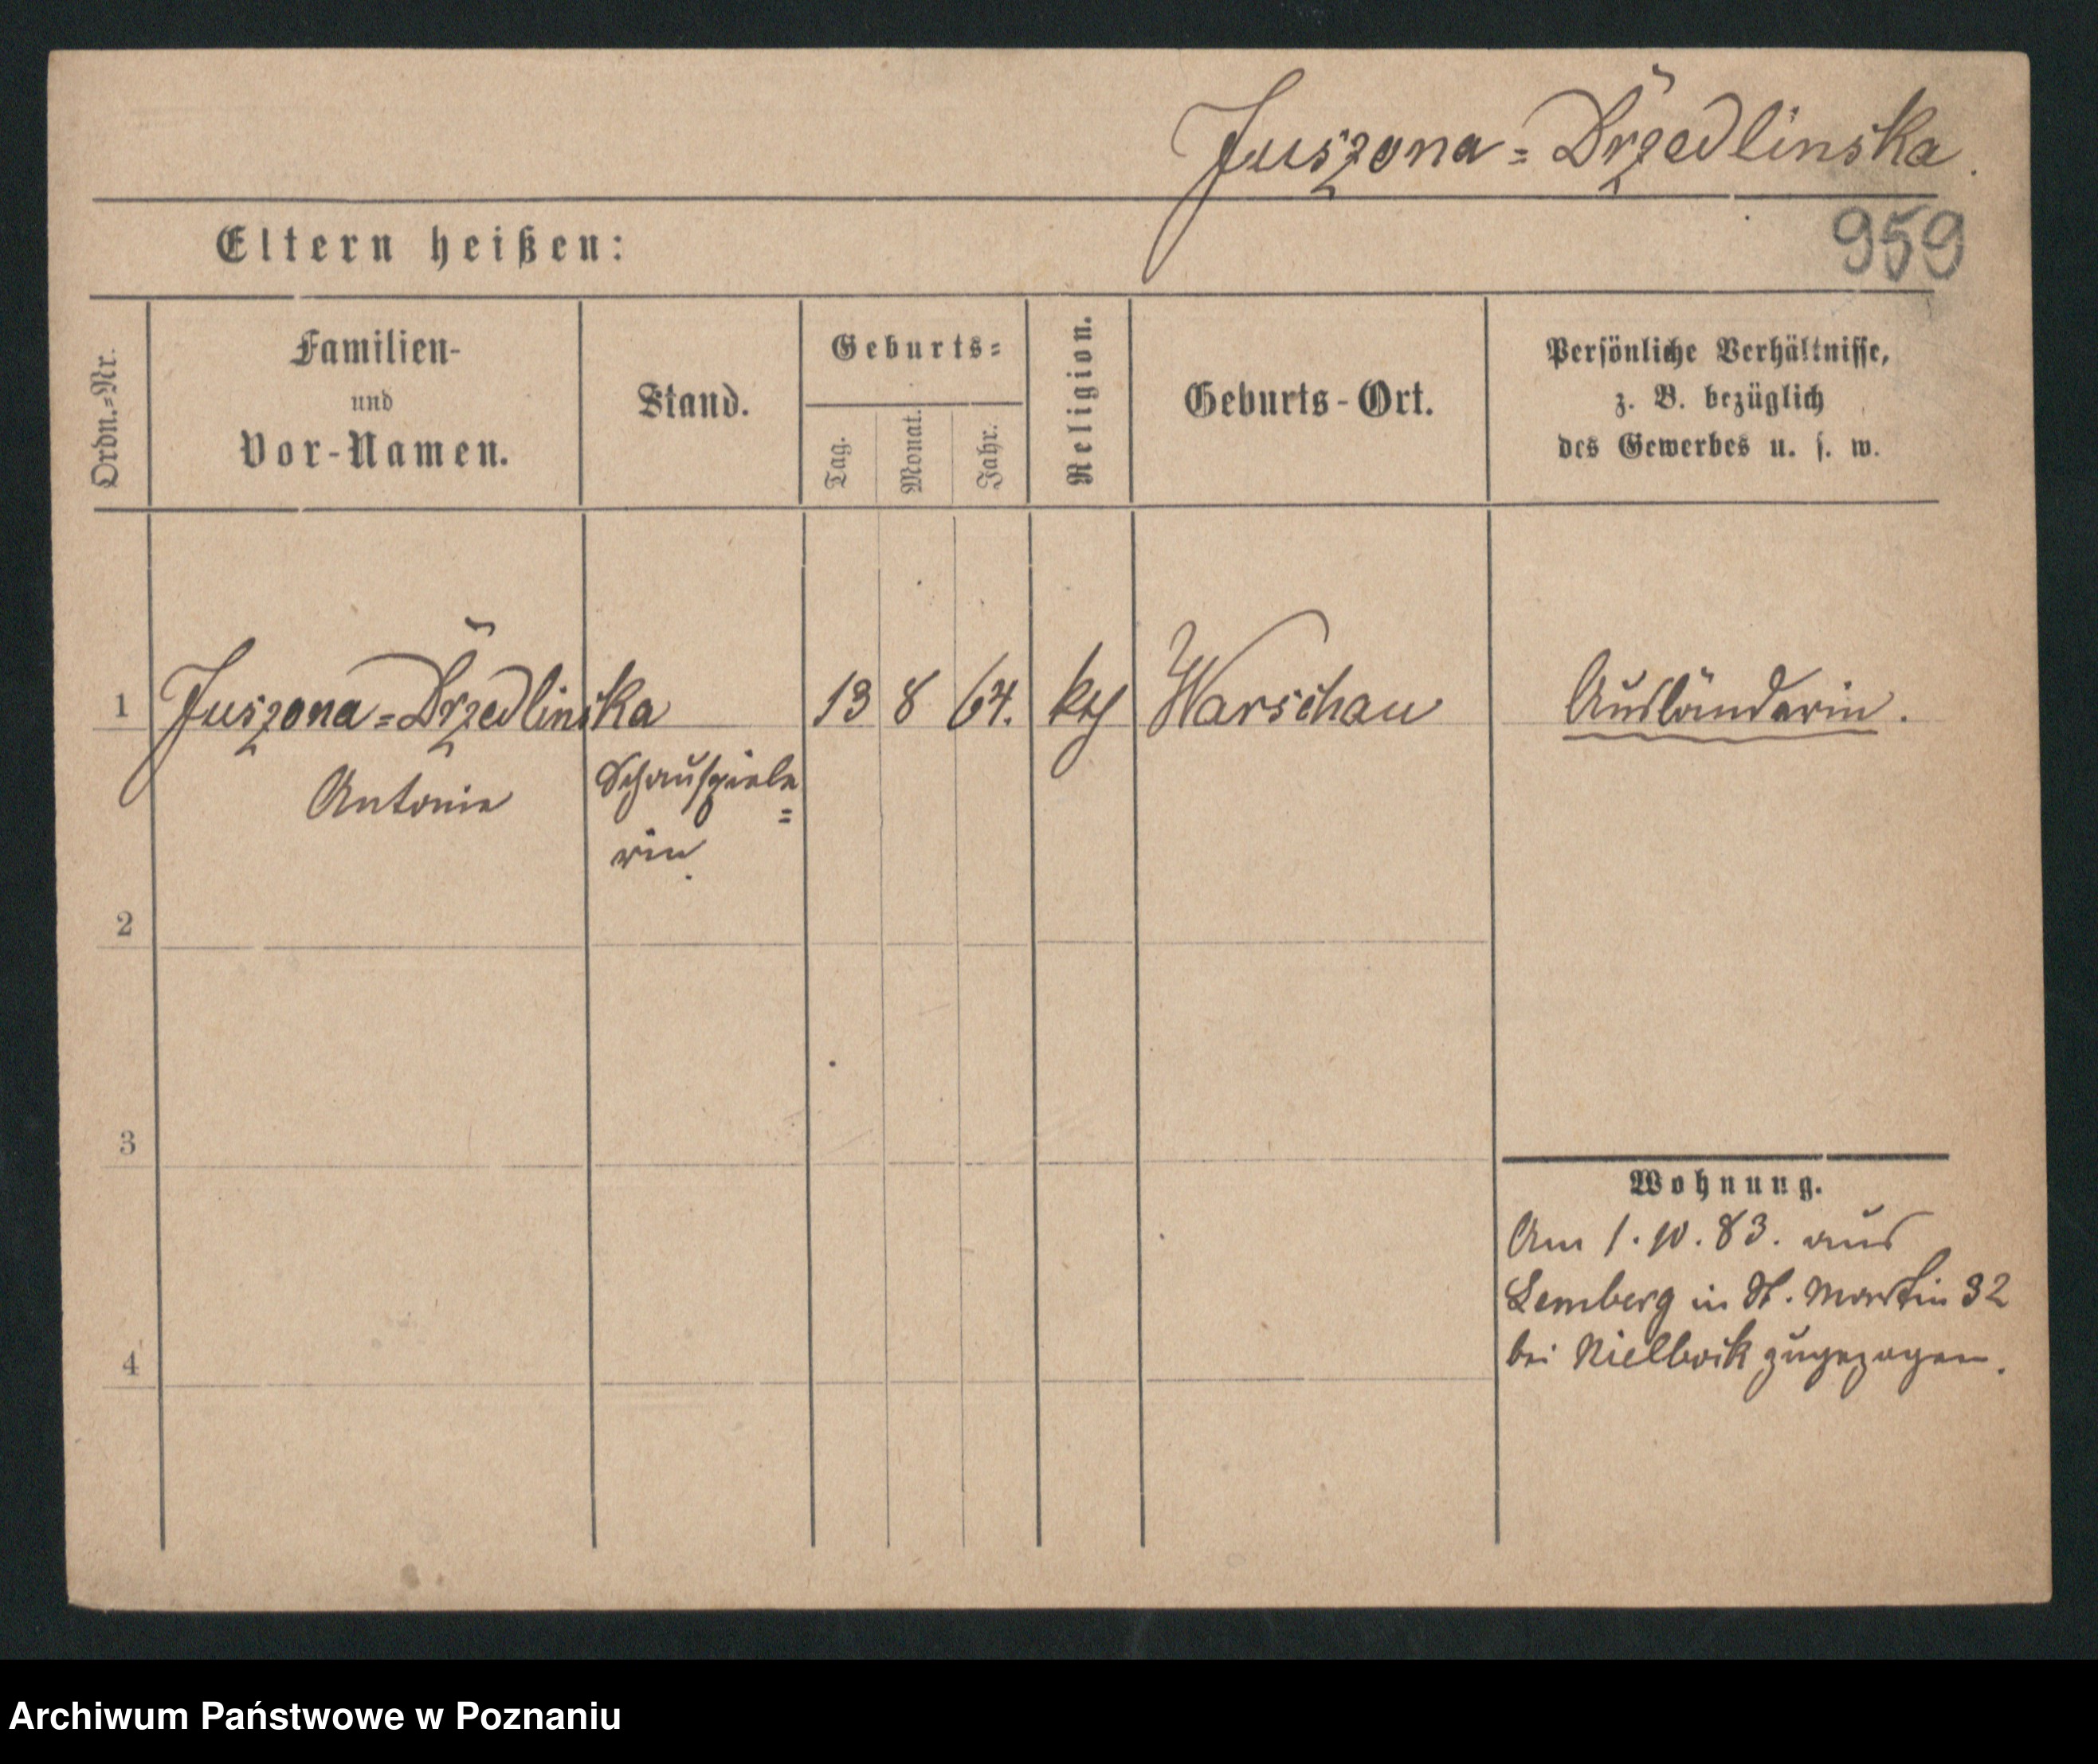 Juszona=Drzedlinska.
959
Eltern heißen:
Ordn.=Nr.
Familien-
und
Vor-Namen.
Stand.
Geburts=
Tag.
Monat.
Jahr.
Religion.
Geburts-Ort.
Persönliche Verhältnisse,
z. B. bezüglich
des Gewerbes u. s. w.
1 Juszona=Drzedlinska 13 8 64. Warschau Ausländerin.
Antonie Schauspiele=
rin.
2
3
4
Wohnung.
Am 1.10.83. aus
Lemberg in St. Martin 32
bei zugezogen.
Archiwum Państwowe w Poznaniu